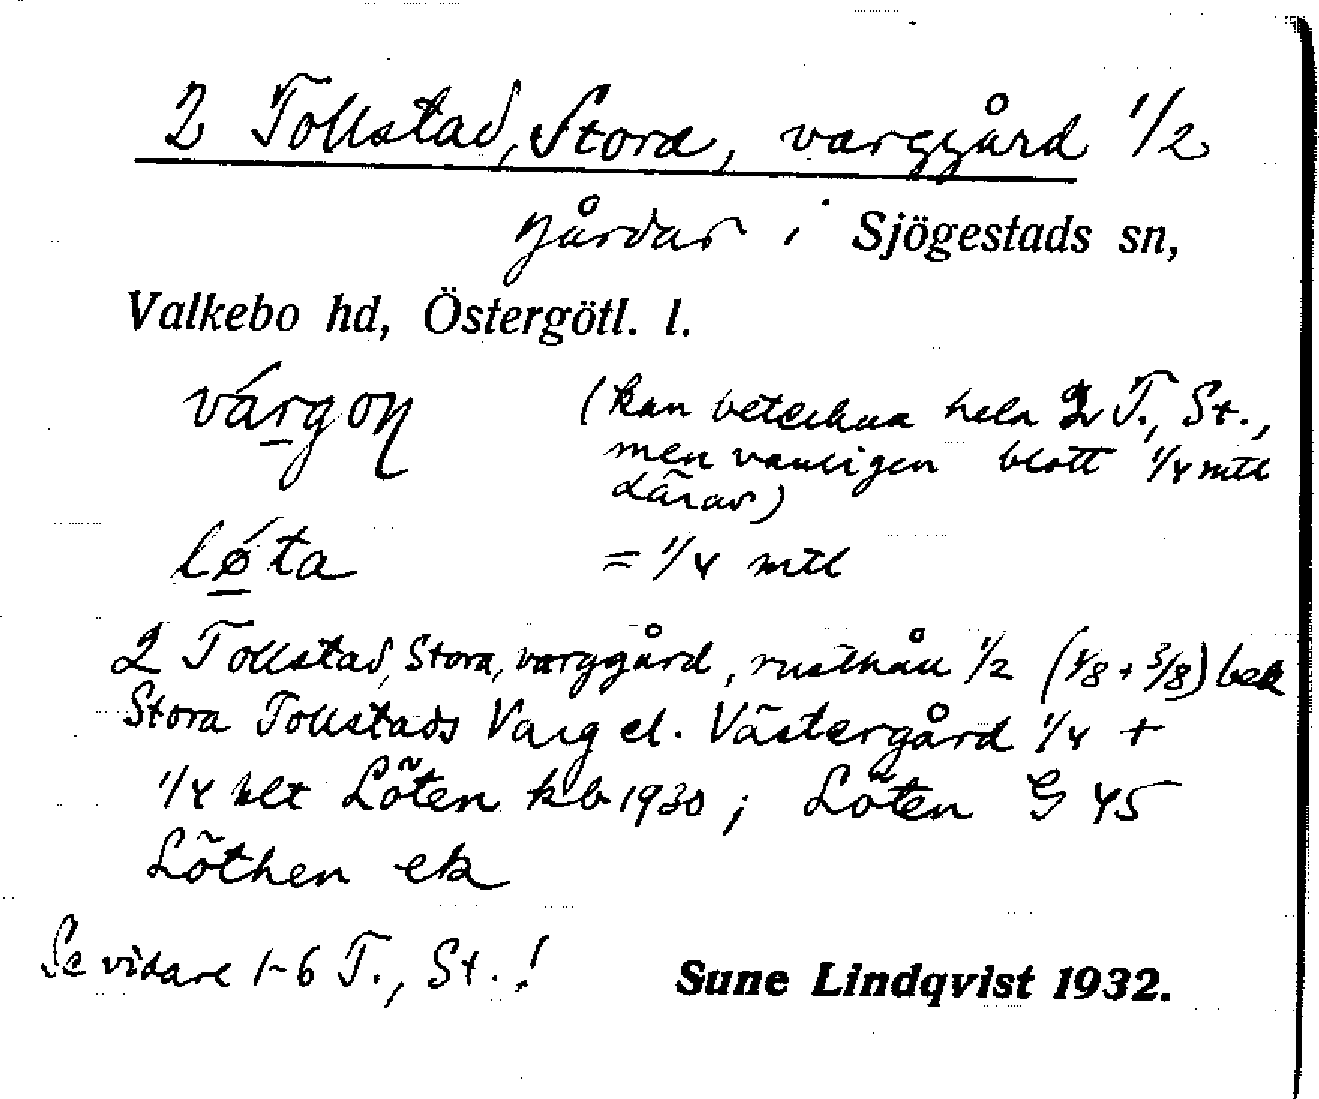 2 Tollstad, Stora, varggård 1/2
gårdar i Sjögestads sn,
Valkebo hd, Östergötl. l.
várgoɳ (kan beteckna hela 2 T., St.,
men vanligen blott 1/4 mtl
därav)
lǿta = 1/4 mtl
2 Tollstad, Stora, varggård, rusthåll 1/2 (1/8 + 3/8) bek
Stora Tollstads Varg el. Västergård 1/4 +
1/4 klt Löten kb 1930; Löten G 45
Löthen ek
Se vidare 1-6 T., St.!
Sune Lindqvist 1932.